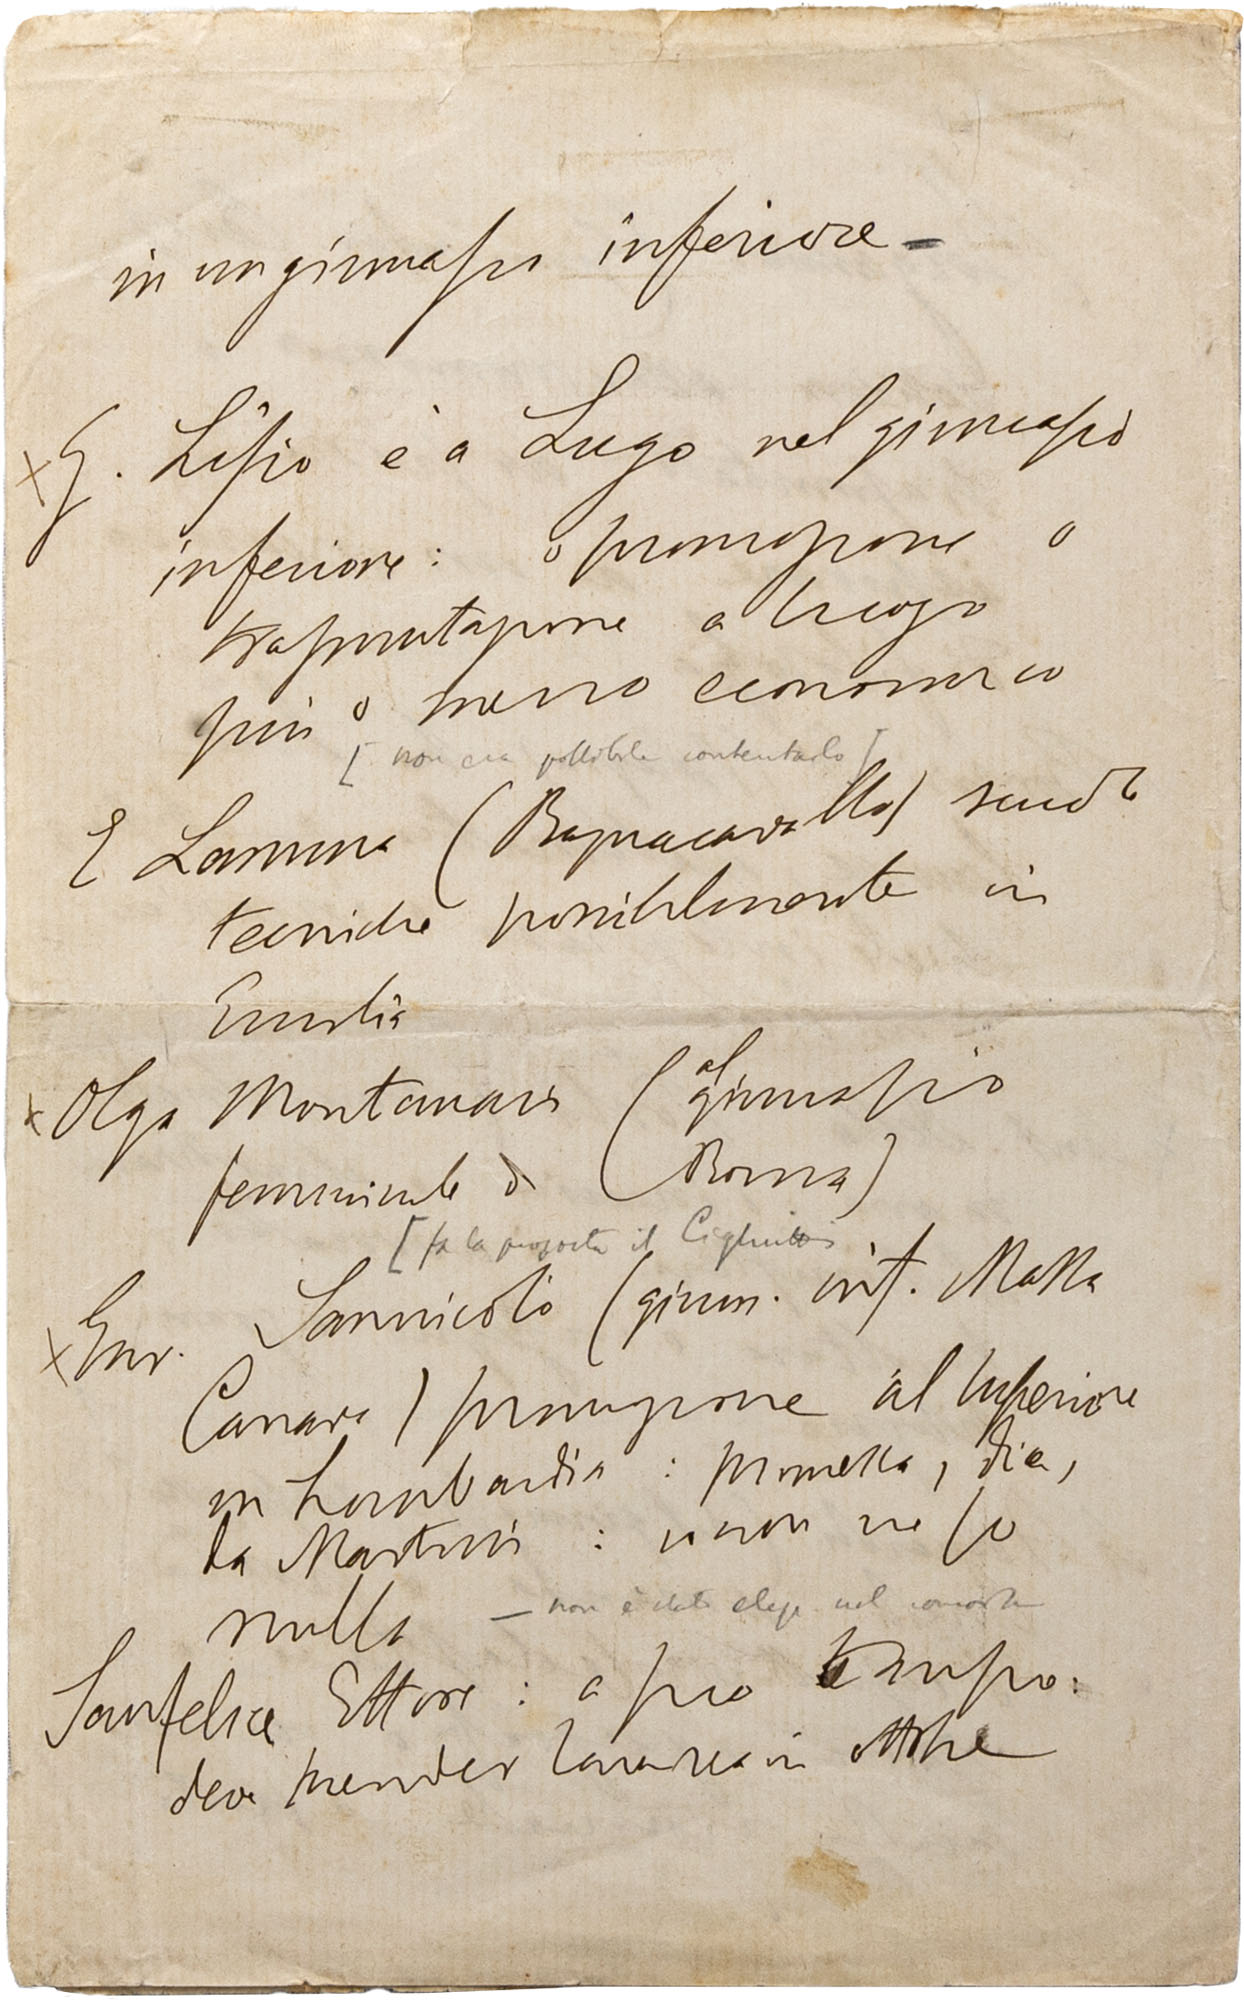 in un ginnasio inferiore –
x G. Lisio è a Lugo nel ginnasio
inferiore: o promozione o
trasmutazione a luogo
più o meno economico
[non era possibile contentarlo]
E Lamma (Bagnacavallo) scuole
tecniche possibilmente in
Emilia
x Olga Montanari (al ginnasio
femminile di (Roma)
[fa la proposta il
x Enr. Sannicolò (ginn. inf. Massa
Carrara) promozione al superiore
in Lombardia: promessa, dice,
da Martini: io non ne so
nulla – non è stato nel concorso
Sanfelice Ettore: a suo tempo:
deve prender laurea in ottobre